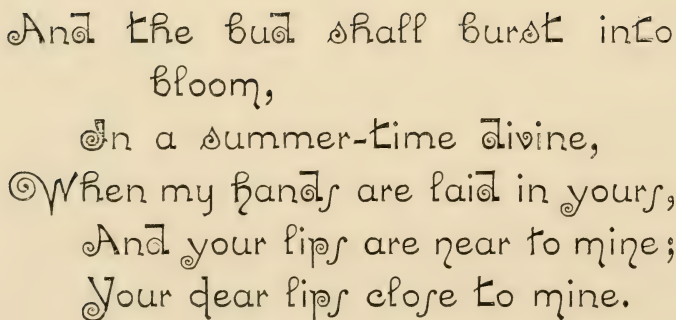 And the bud shall burst into
bloom,
In a summer-time divine,
When my hands are laid in yours,
And your lips are near to mine;
Your dear lips close to mine.